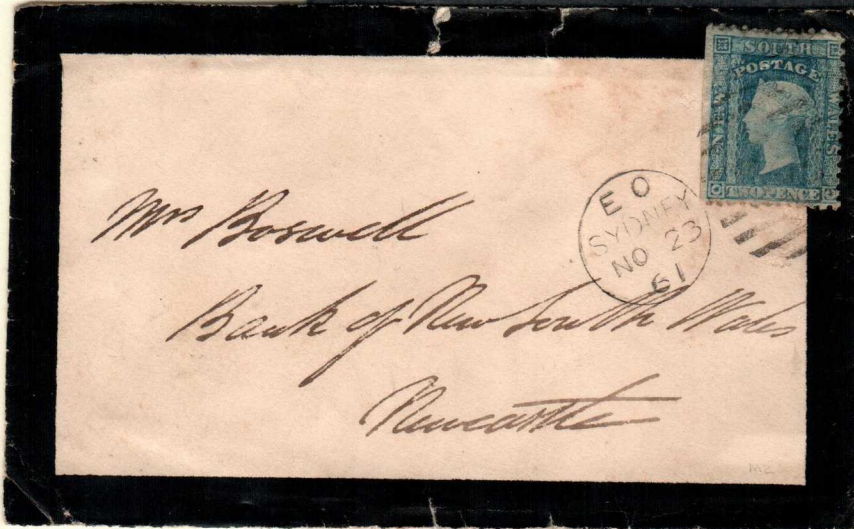 SOUTH
POSTAGE
NEW
WALES
TWO PENCE
EO
SYDNEY
NO 23
61
Mrs Boswell
Bank of New South Wales
Newcastle